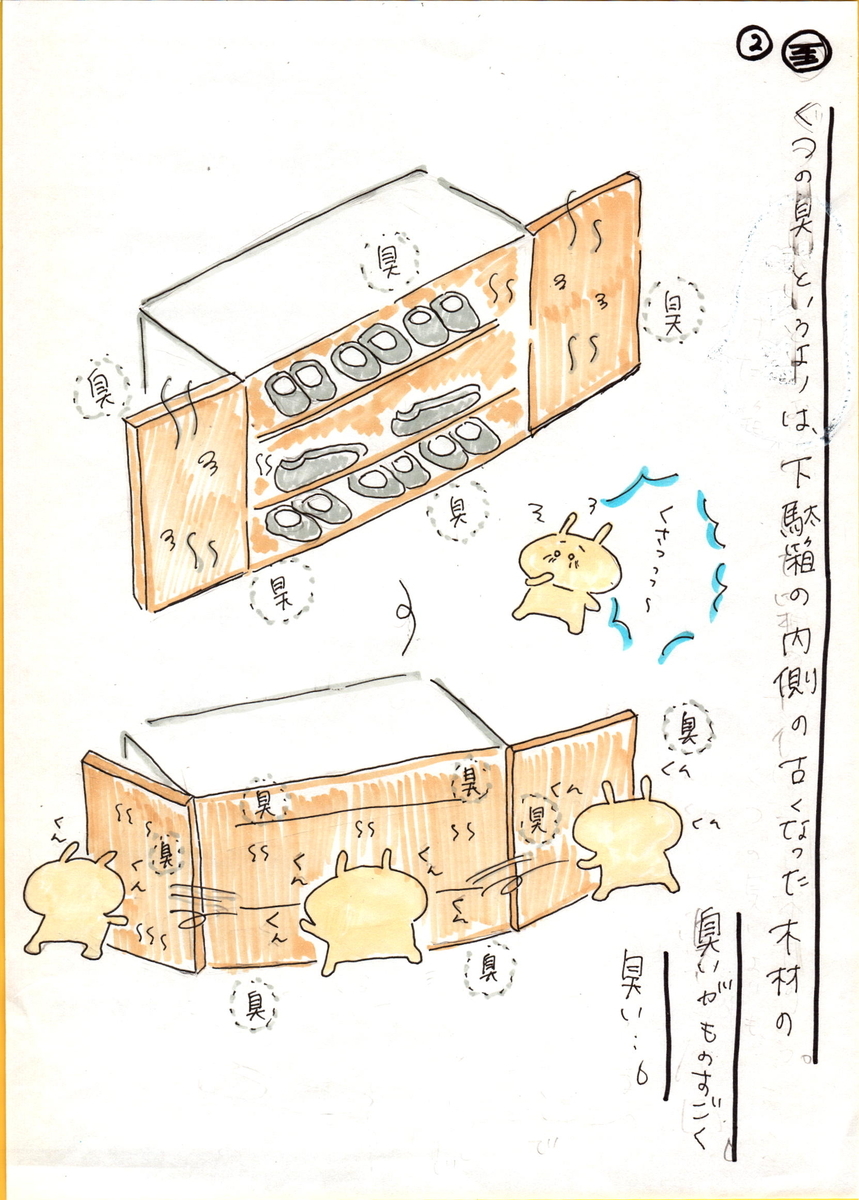 ②
くつの臭というよりは、下駄箱の内側の古くなった木材の
臭いがものすごく
臭い…。
臭
臭
臭
臭
臭
くさっっっ〜
臭
臭
臭
臭
臭
臭
臭
くん
くん
くん
くん
くん
くん
くん
くん
くん